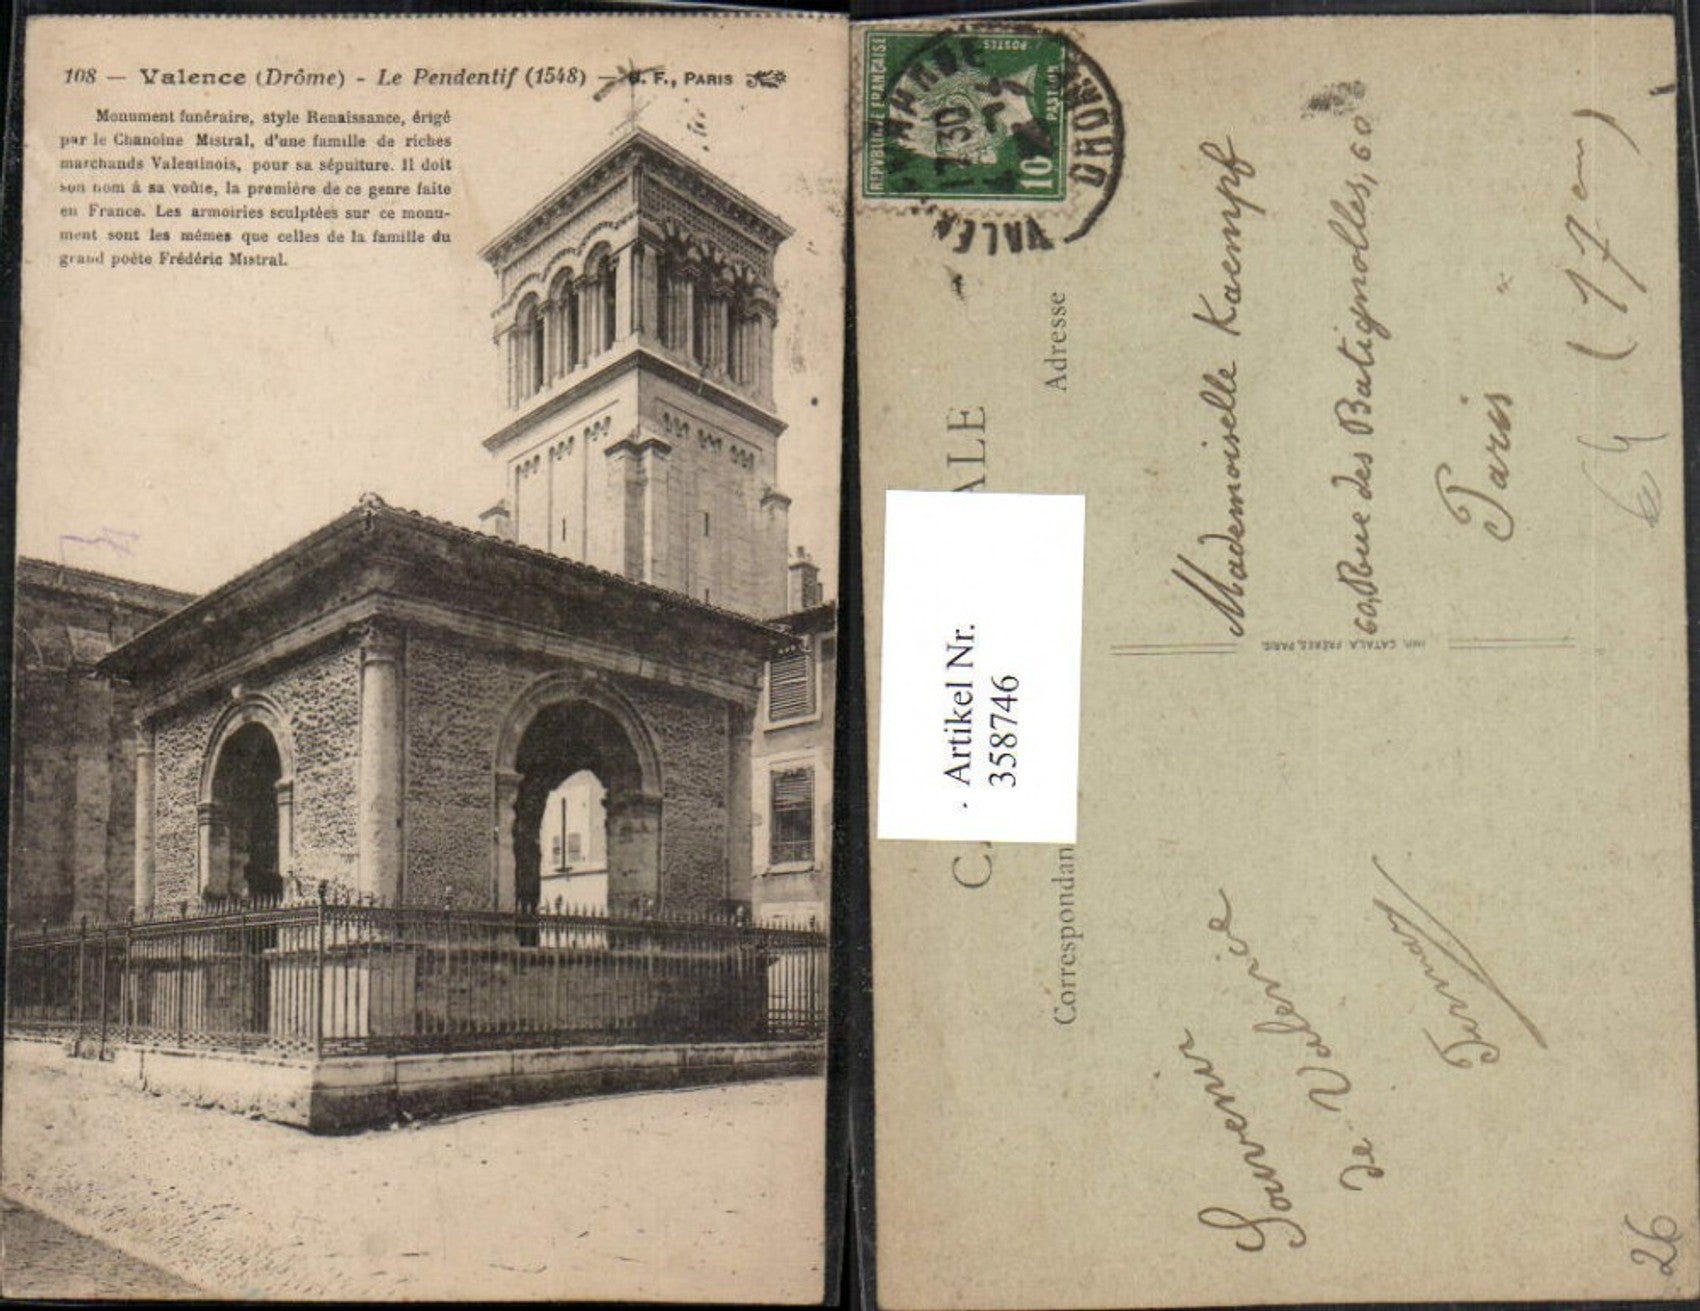 108 — Valence (Drôme) - Le Pendentif (1548) — F., PARIS
Monument funéraire, style Renaissance, érigé
par le Chanoine Mistral, d'une famille de riches
marchands Valentinois, pour sa sépulture. Il doit
son nom à sa voûte, la première de ce genre faite
en France. Les armoiries sculptées sur ce monu-
ment sont les mêmes que celles de la famille du
grand poète Frédéric Mistral.
REPUBLIQUE FRANCAISE
POSTES
PASTEUR
10
VALENCE
DROME
ALE
Correspondan
Adresse
Artikel Nr.
3588746
Mademoiselle Kaempf
60, Rue des Batignolles, 60
Paris
(17em)
IMP. CATALA FRÈRES, PARIS
Souvenir
de Valence
26